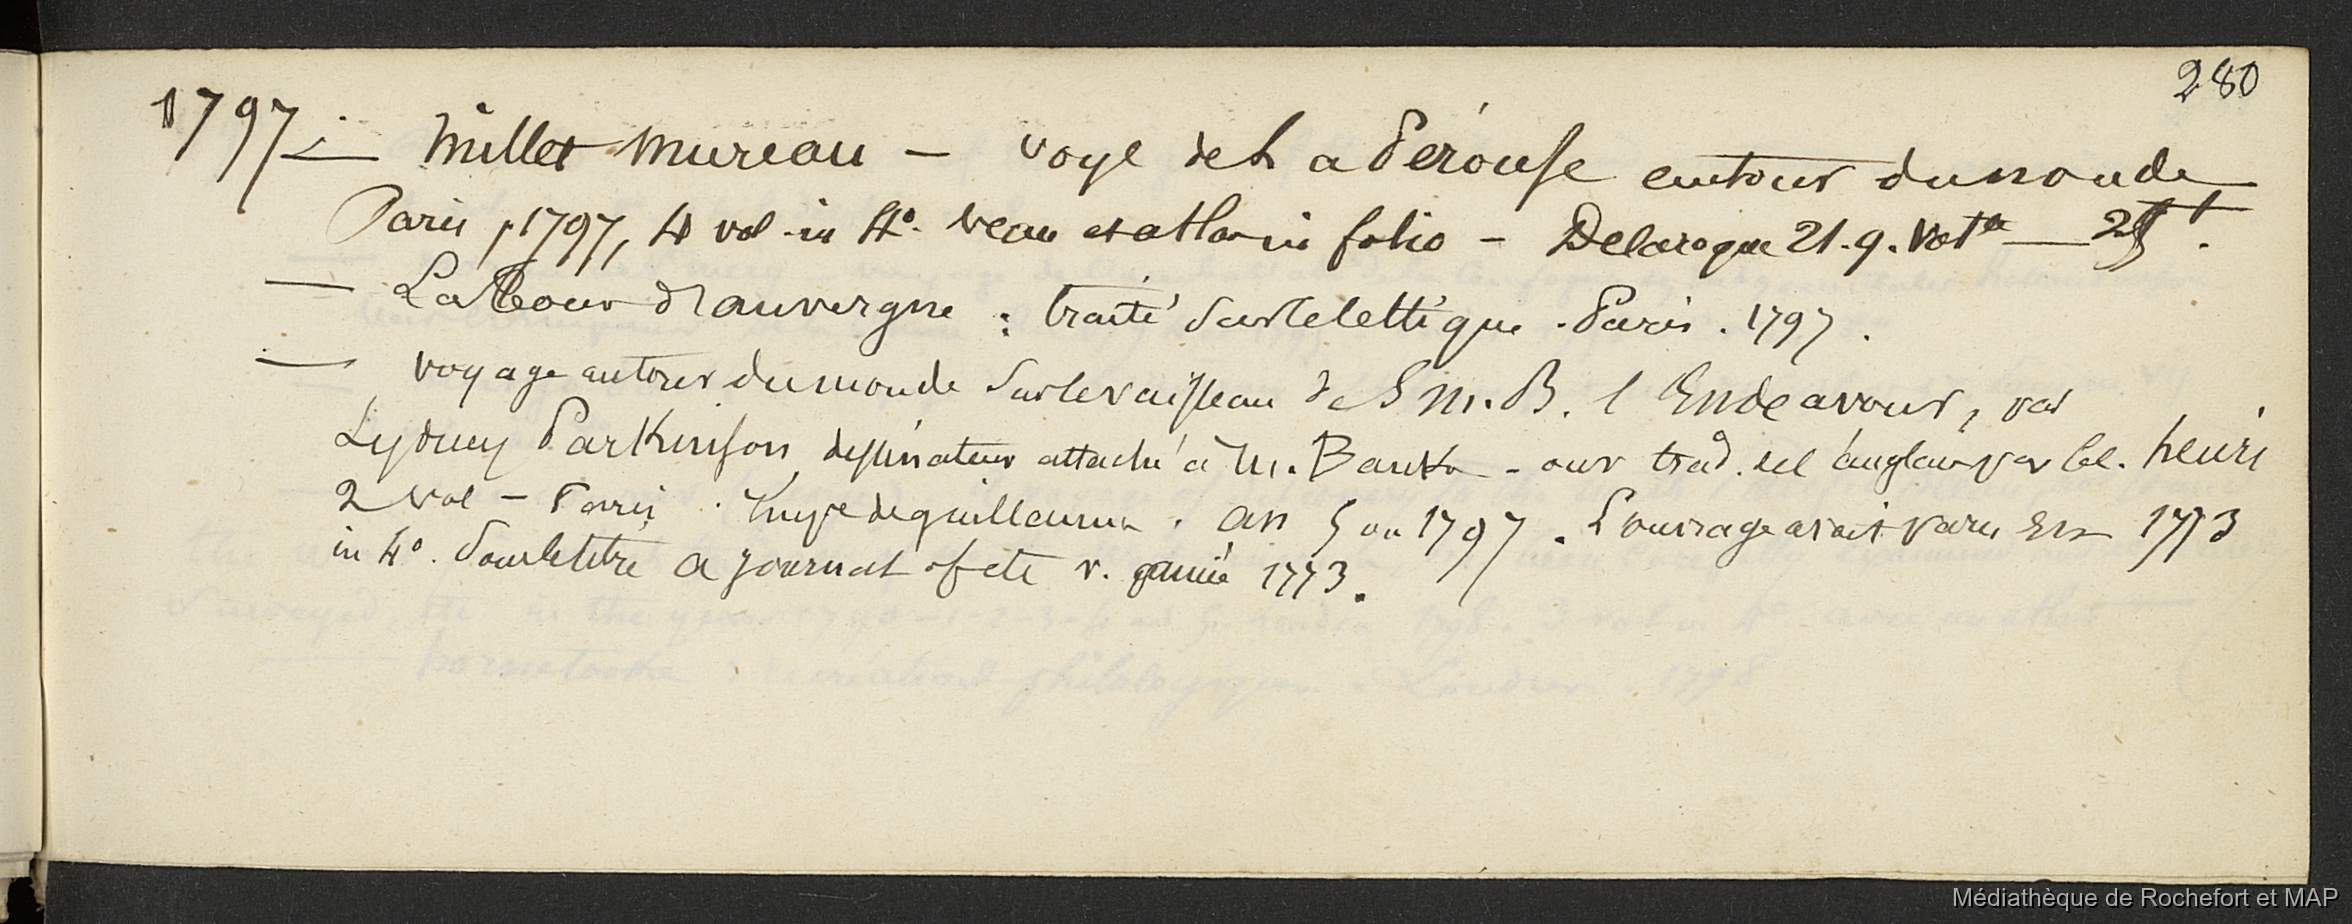 280
1797 — Millet Mureau — voye de La Pérouse autour du monde
Paris, 1797, 4 vol. in 4°. veau et atlas in folio – Delaroque 21. q. Volt — 25 f.
— La Tour d'auvergne : traité sur le lettique. Paris. 1797.
— voyage autour du monde sur le vaisseau de S M. B. l'Endeavour, par
Sydney Parkinson dessinateur attaché à M. Banks - ouv trad. de l'anglais par le c. henri
2 vol – Paris. Impe de guillaume. an 5 ou 1797. L'ouvrage avait paru en 1773
in 4°. sous le titre a journal of etc v. année 1773.
Médiathèque de Rochefort et MAP